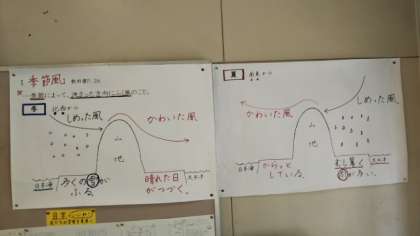 季節風
季節によって、決まった方向にふく風のこと。
冬 北西から
しめった風
かわいた風
山
地
日本海
多くの雪が
ふる。
晴れた日
がつづく。
太平洋
夏 南東から
かわいた風
しめった風
山
地
日本海
からっと
している。
むし暑く
雨が多い。
太平洋